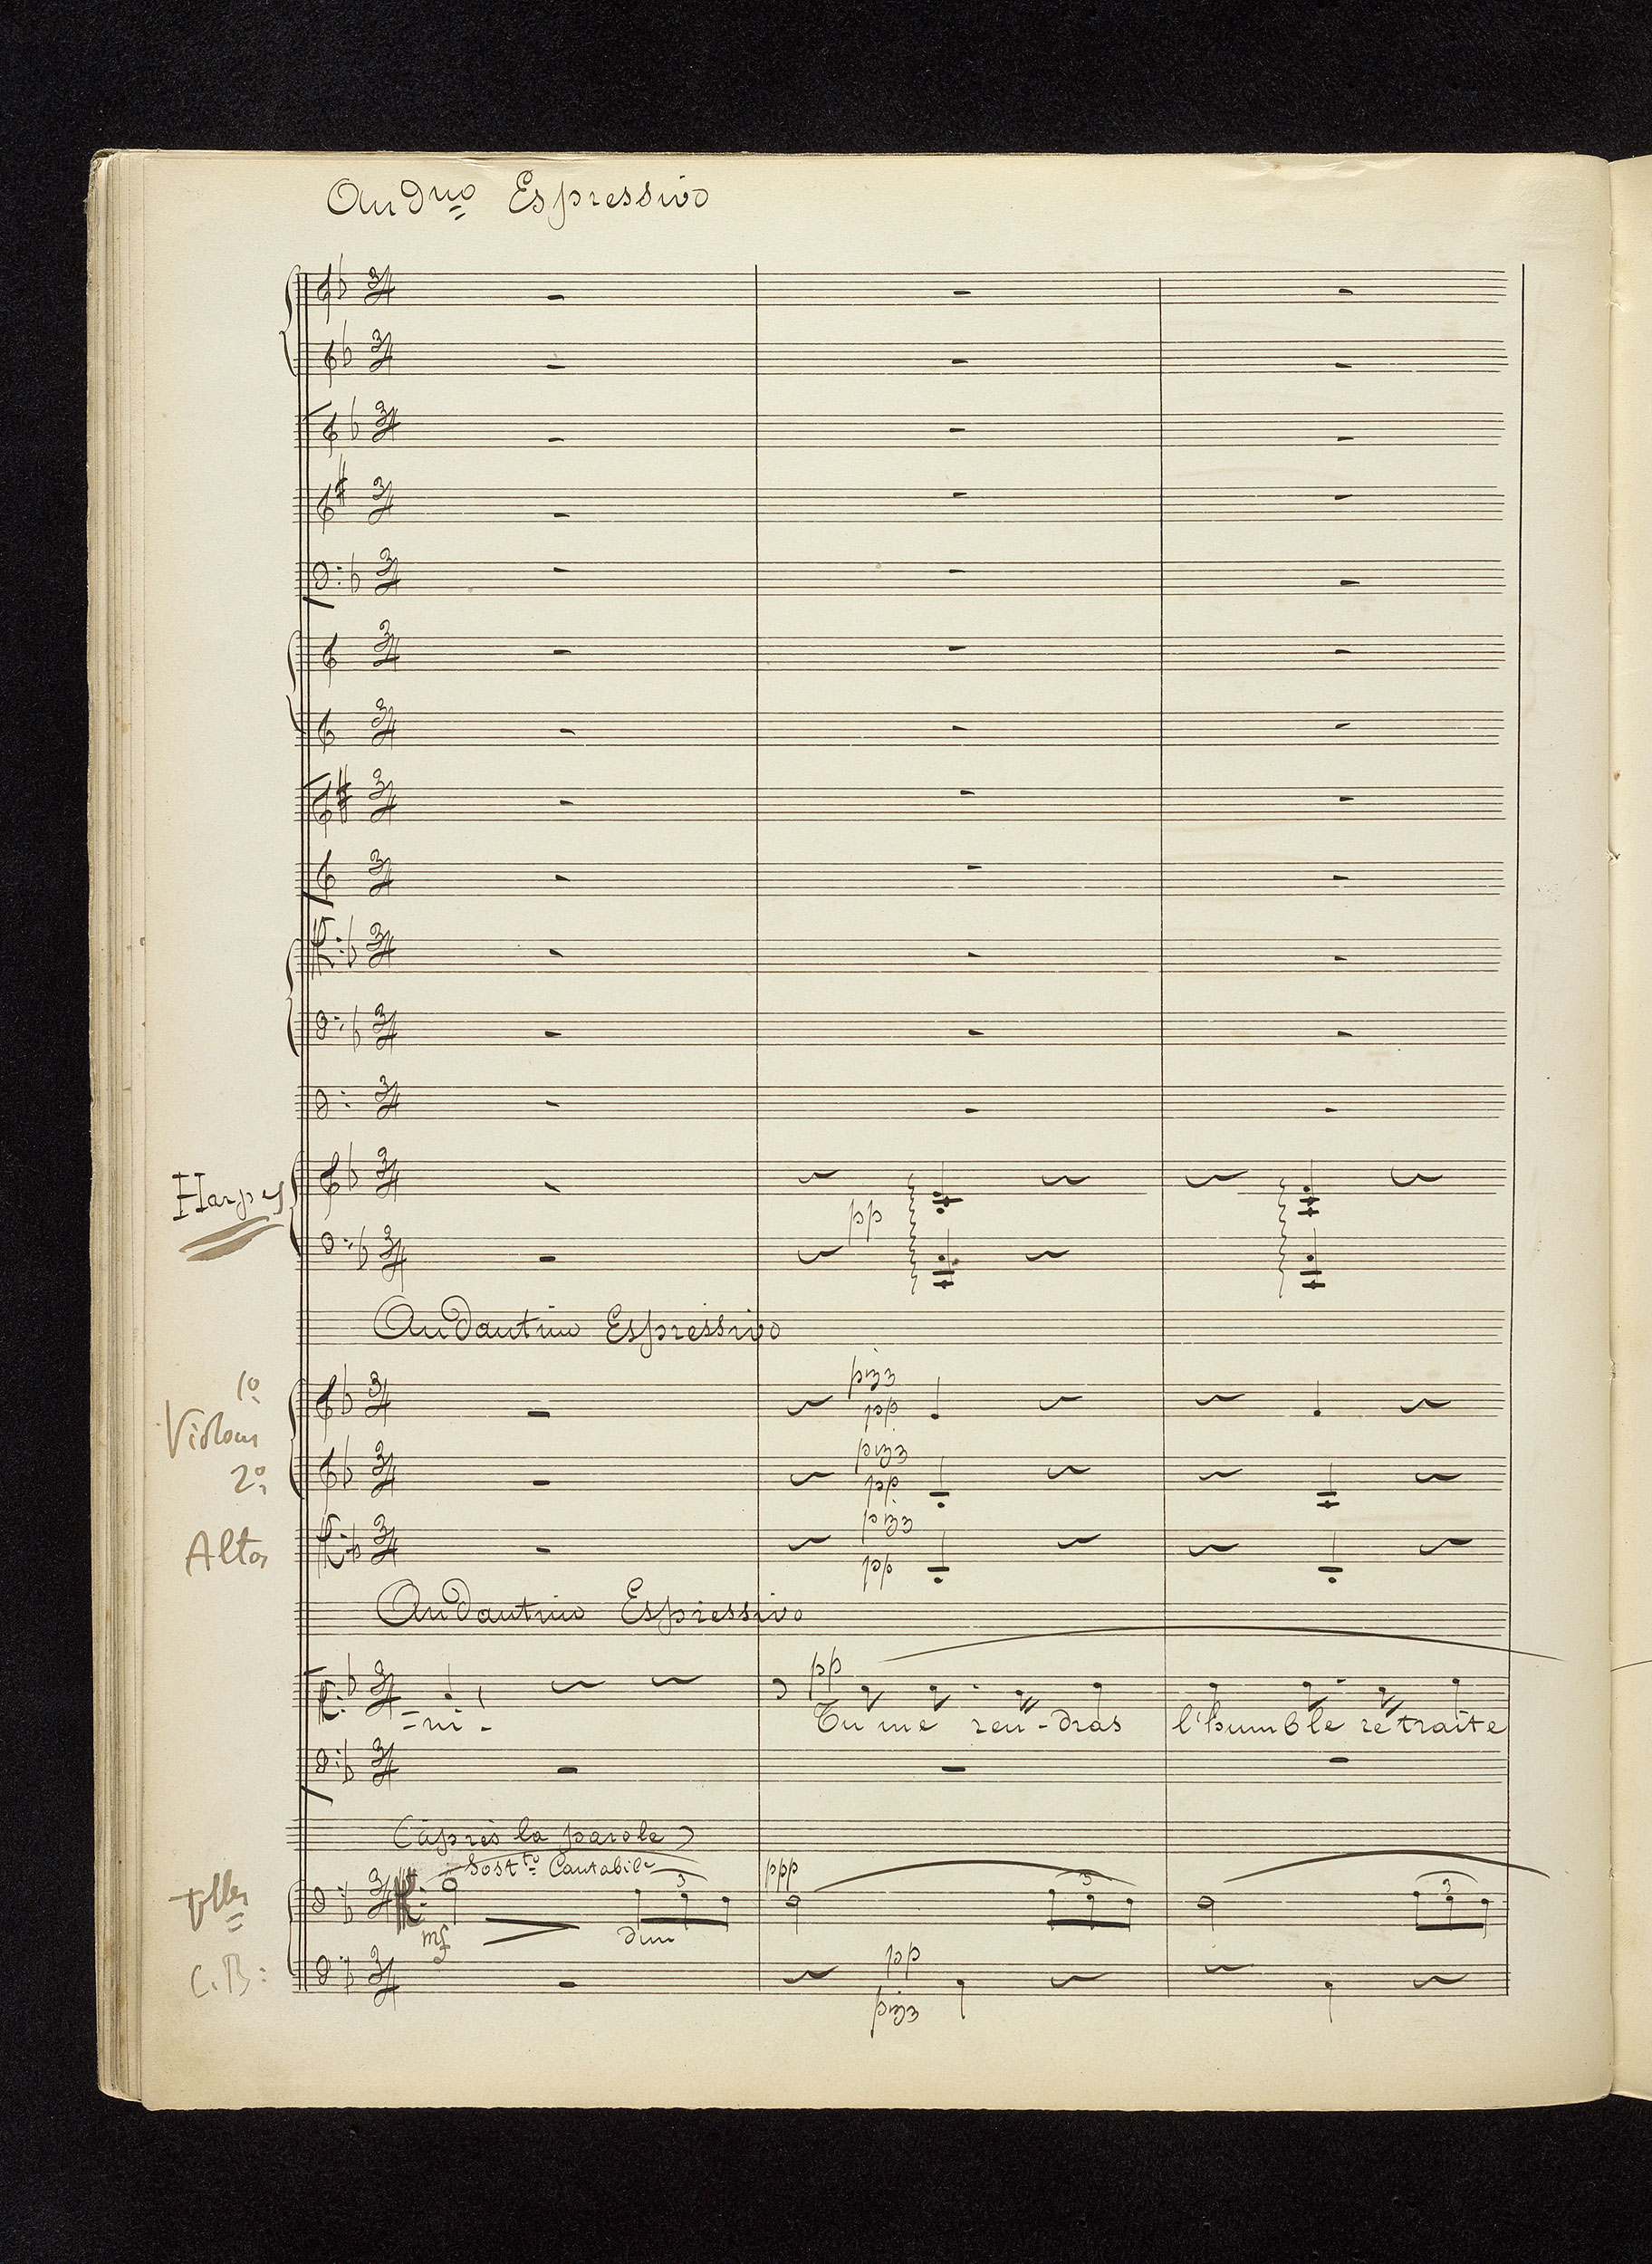 And<sup>no</sup> Espressivo
Harpes
pp
Andantino Espressivo
1º
pizz
pp
Violons
pizz
2º
pp
pizz
Altos
pp
Andantino Espressivo
pp
=ni- Tu me ren-dras l'humble retraite
(après la parole)
Sost<sup>to</sup> Cantabile
ppp
3 3 3
Vlles
mf dim
pp
C.B:
pizz